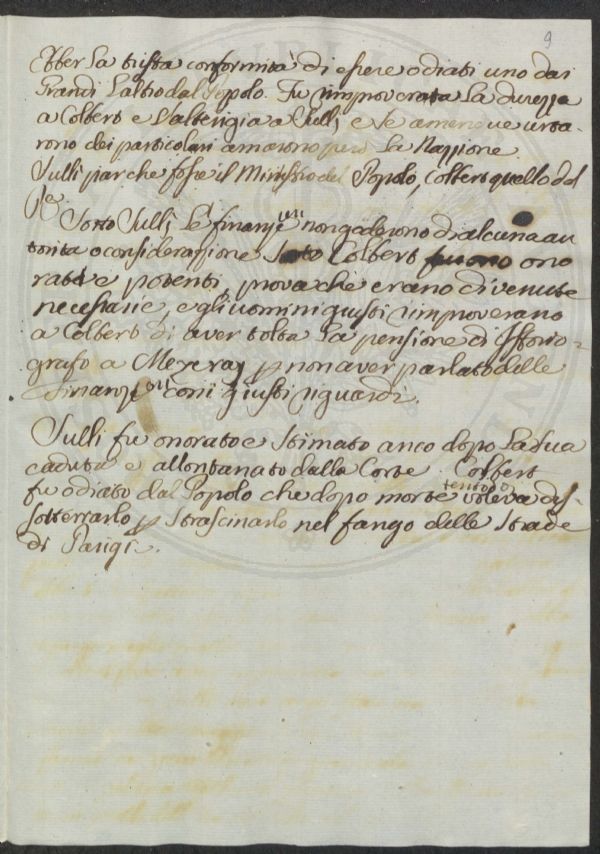 9
Ebber la trista conformità di essere odiati uno dai
Grandi l'altro dal Popolo. Fu rimproverata la durezza
a Colbert e l'alterigia a Sulli, e se amendue urta-
rono dei particolari amarono però la Nazzione
Sulli par che fosse il Ministro del Popolo, Colbert quello del
Re.
Sotto Sulli, le finanzieri non godevono di alcuna au
torita o considerazzione sotto Colbert furono ono
rati e potenti, prova che erano divenute
necessarie, e gli uomini giusti rimproverano
a Colbert di aver tolta la pensione di Istorio-
grafo a Mezeray p non aver parlato delle
Finanze con i giusti riguardi.
Sulli fu onorato e stimato anco dopo la sua
caduta e allontanato dalla Corte. Colbert
fu odiato dal Popolo che dopo morte voleva dis-
sotterrarlo p strascinarlo nel fango delle strade
di Parigi.